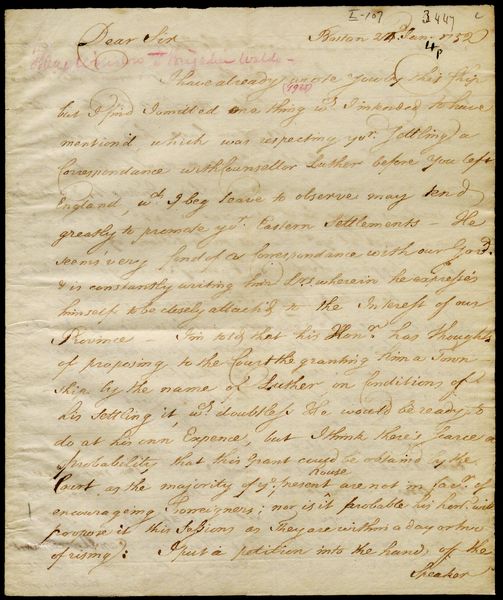 I-107 3447
Dear Sir Boston 28 Jan. 1752
4p
to Brigadier Waldo
I have already wrote you by this Ship
(1925)
but I find I omitted one thing wch. I intended to have
mention'd which was respecting yor. Settling a
Correspondance with Counsellor Luther before you left
England, wch I beg leave to observe may tend
greatly to promote yor. Eastern Settlements - He
seems very fond of a Correspondence with our Govr.
& is constantly writing him Lrs wherein he express's
himself to be closely attach'd to the Interest of our
Province - I'm told that his Honr. has Thoughts
of proposing to the Court the granting him a Town
ship by the name of Luther on Conditions of
his Settling it, wch doubtless He would be ready to
do at his own Expence, but I think there's scarce a
probability that this Grant could be obtain'd by the
Court as the majority of ye. present house are not in favr. of
encouraging Foreigners; nor is it probable his honr. will
propose it this Sessions as They are within a day or two
of rising: I put a petition into the hand of the
Speaker